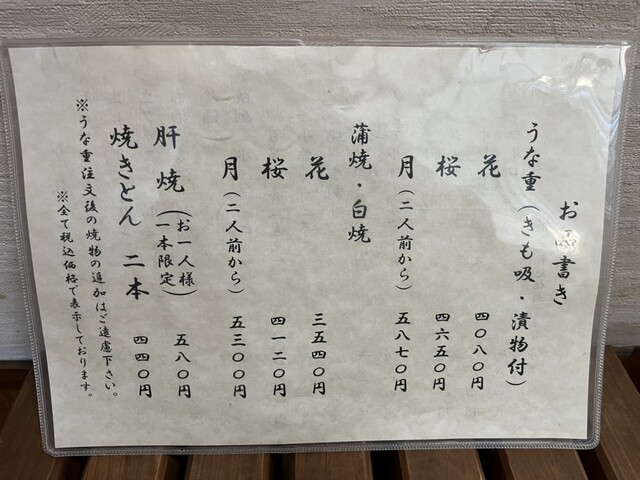 お品書き
うな重（きも吸・漬物付）
花 四〇八〇円
桜 四六五〇円
月（二人前から） 五八七〇円
蒲焼・白焼
花 三五四〇円
桜 四一二〇円
月（二人前から） 五三〇〇円
肝焼（お一人様一本限定） 五八〇円
焼きとん 二本 四四〇円
※うな重注文後の焼物の追加はご遠慮下さい。
※全て税込価格で表示しております。